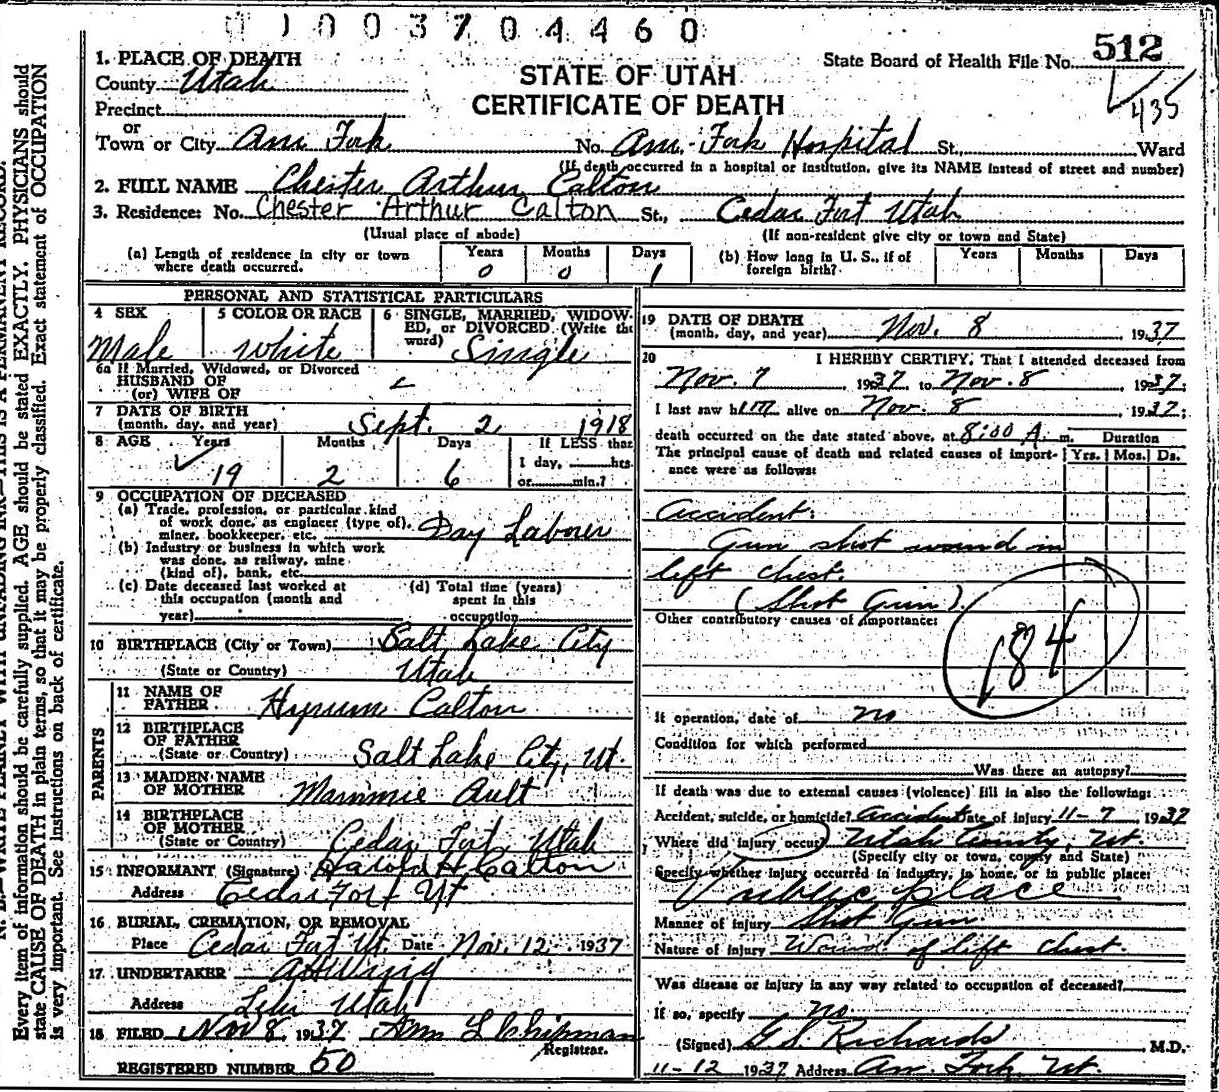 0100370 4460
1. PLACE OF DEATH
County Utah
Precinct
or
Town or City Am Fork No. Am. Fork Hospital St., Ward
(If death occurred in a hospital or institution, give its NAME instead of street and number)
STATE OF UTAH
CERTIFICATE OF DEATH
State Board of Health File No. 512
435
2. FULL NAME Chester Arthur Calton
3. Residence: No. Chester Arthur Calton St., Cedar Fort Utah
(Usual place of abode) (If non-resident give city or town and State)
(a) Length of residence in city or town where death occurred. Years 0 Months 0 Days 1
(b) How long in U. S., if of foreign birth? Years Months Days
PERSONAL AND STATISTICAL PARTICULARS
4 SEX Male
5 COLOR OR RACE White
6 SINGLE, MARRIED, WIDOWED, or DIVORCED. (Write the word) Single
6a If Married, Widowed, or Divorced
HUSBAND OF
(or) WIFE OF
7 DATE OF BIRTH
(month, day, and year) Sept. 2 1918
8 AGE Years 19 Months 2 Days 6
If LESS than
1 day, hrs.
or min.?
9 OCCUPATION OF DECEASED
(a) Trade, profession, or particular kind
of work done, as engineer (type of),
miner, bookkeeper, etc. Day Laborer
(b) Industry or business in which work
was done, as railway, mine
(kind of), bank, etc.
(c) Date deceased last worked at
this occupation (month and
year)
(d) Total time (years)
spent in this
occupation
10 BIRTHPLACE (City or Town) Salt Lake City
(State or Country) Utah
PARENTS
11 NAME OF
FATHER Hyrum Calton
12 BIRTHPLACE
OF FATHER
(State or Country) Salt Lake City, Ut.
13 MAIDEN NAME
OF MOTHER Mammie Ault
14 BIRTHPLACE
OF MOTHER
(State or Country) Cedar Fort, Utah
15 INFORMANT (Signature) Harold H. Calton
Address Cedar Fort Ut
16 BURIAL, CREMATION, OR REMOVAL
Place Cedar Fort Ut. Date Nov. 12 - 1937
17. UNDERTAKER
Address Lehi Utah
18 FILED Nov 8, 1937 Chipman
Registrar.
REGISTERED NUMBER 50
19 DATE OF DEATH
(month, day, and year) Nov. 8 1937
20 I HEREBY CERTIFY, That I attended deceased from
Nov. 7 1937 to Nov. 8, 1937;
I last saw him alive on Nov. 8 1937;
death occurred on the date stated above, at 8:00 A. m.
The principal cause of death and related causes of importance were as follows:
Duration
Yrs. Mos. Ds.
Accident:
Gun shot wound in
left chest.
(Shot Gun).
Other contributory causes of importance:
184
If operation, date of no
Condition for which performed
Was there an autopsy?
If death was due to external causes (violence) fill in also the following:
Accident, suicide, or homicide? Accident Date of injury 11-7, 1937
Where did injury occur? Utah County, Ut.
(Specify city or town, county and State)
Specify whether injury occurred in industry, in home, or in public place:
Public place
Manner of injury Shot Gun
Nature of injury Wound of left chest.
Was disease or injury in any way related to occupation of deceased?
If so, specify no
(Signed) G. S. Richards M.D.
11-12 1937 Address Am. Fork, Ut.
Every item of information should be carefully supplied. AGE should be stated EXACTLY. PHYSICIANS should
state CAUSE OF DEATH in plain terms, so that it may be properly classified. Exact statement of OCCUPATION
is very important. See Instructions on back of certificate.